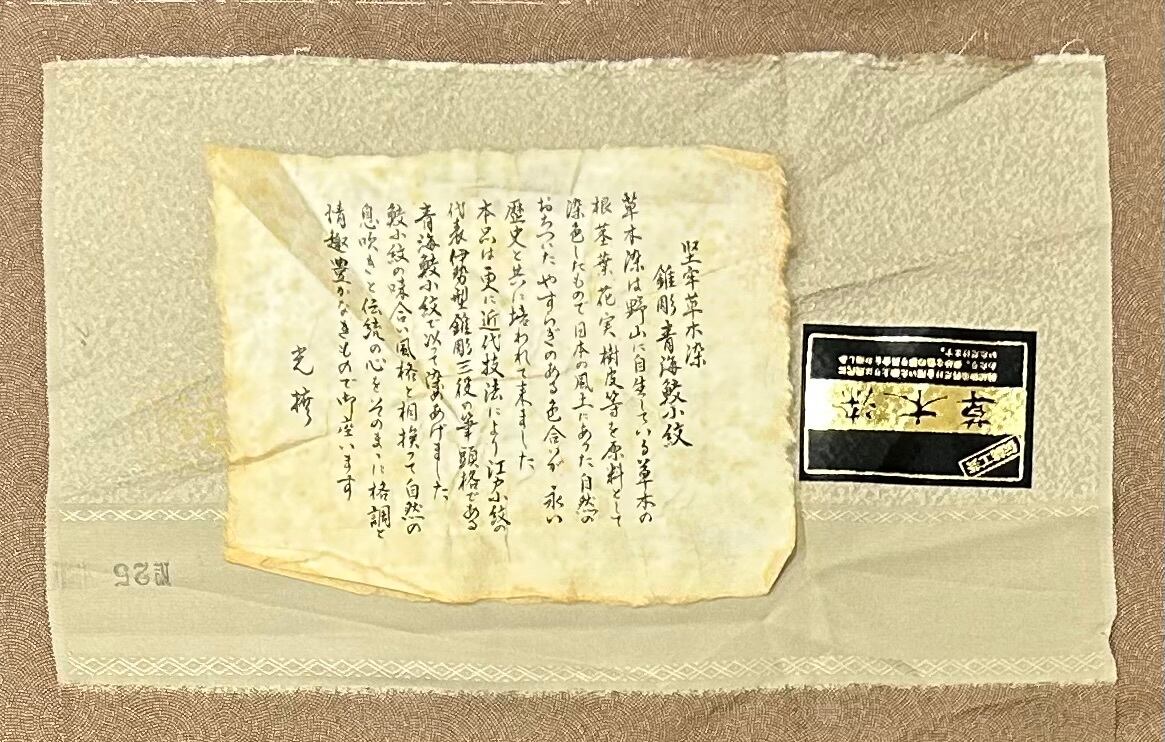 堅牢草木染
錐彫青海鮫小紋
草木染は野山に自生している草木の
根茎葉花実樹皮等を原料として
染色したもので日本の風土にあった自然の
おちついたやすらぎのある色合いが永い
歴史と共に培われて来ました
本品は更に近代技法により江戸小紋の
代表伊勢型錐彫三役の筆頭格である
青海鮫小紋で以て染めあげました
鮫小紋の味合い風格と相挨って自然の
息吹きと伝統の心をそのままに格調と
情趣豊かなきもので御座います
光
草木染
№25